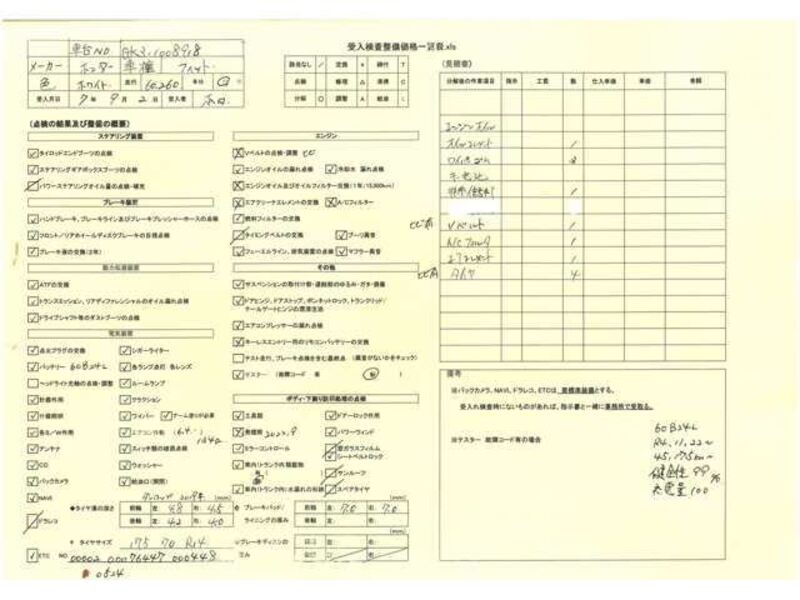 受入検査整備価格一覧表.xls
車台NO GK3-1008918
メーカー ホンダ 車種 フィット
色 ホワイト 走行 60,260
受入月日 7年 9月 2日 受入者
該当なし / 交換 × 締付 T
点検 レ 修理 △ 清掃 C
分解 O 調整 A 給油 L
(見積書)
分解後の作業項目 指示 工賃 数 仕入単価 単価 金額
エンジンオイル
オイルエレメント 1
ワイパーゴム
1
Vベルト 1
A/Cフィルタ 1
エアエレメント 1
タイヤ 4
(点検の結果及び整備の概要)
ステアリング装置
タイロッドエンドブーツの点検
ステアリングギアボックスブーツの点検
パワーステアリングオイル量の点検・補充
ブレーキ装置
ハンドブレーキ、ブレーキライン及びブレーキプレッシャーホースの点検
フロント/リアホイールディスクブレーキの目視点検
ブレーキ液の交換(2年)
動力伝達装置
ATFの交換
トランスミッション、リアディファレンシャルのオイル漏れ点検
ドライブシャフト等のダストブーツの点検
電気装置
点火プラグの交換 シガーライター
バッテリー 60B24L 各ランプ点灯 各レンズ
ヘッドライト光軸の点検・調整 ルームランプ
計器作用 クラクション
付属開閉 ワイパー アーム塗り必要
各S/W作用 エアコン作動
アンテナ スイッチ類の破損点検
CD ウォッシャー
バックカメラ 給油口(開閉)
NAVI
ドラレコ
ETC NO 00002 00076447 000448
0524
エンジン
Vベルトの点検・調整 ヒビ
エンジンオイルの漏れ点検 冷却水 漏れ点検
エンジンオイル及びオイルフィルター交換(1年/15,000km)
エアクリーナエレメントの交換 A/Cフィルター
燃料フィルターの交換
タイミングベルトの交換 プーリ異音
フューエルライン、排気装置の点検 マフラー異音
その他
サスペンションの取付け部・連結部のゆるみ・ガタ・損傷
ドアヒンジ、ドアストップ、ボンネットロック、トランクリッド/
テールゲートヒンジの潤滑注油
エアコンプレッサーの漏れ点検
キーレスエントリー用のリモコンバッテリーの交換
テスト走行、ブレーキ点検を含む最終点検 (異音がないかをチェック)
テスター (故障コード 有 無)
ボディ・下廻り防錆処理の点検
工具類 ドアーロック作用
発煙筒 2022.9 パワーウィンドウ
ミラーコントロール 窓ガラスフィルム
シートベルトロック
車内(トランク内)類動物 サンルーフ
車内(トランク内)水漏れの形跡 スペアタイヤ
2019年 (mm)
◆タイヤ溝の深さ 前輪 左: 右: 4.5
後輪 左: 4.2 右: 4.0
ブレーキパッド/ライニングの厚み 前輪 左: 7.0 右: 7.0
後輪 左: 右:
タイヤサイズ 175 70 R14
備考
※バックカメラ、NAVI、ドラレコ、ETCは、見積未装備とする。
受入れ検査時にないものがあれば、指示書と一緒に事務所で受取る。
※テスター 故障コード有の場合
60B24L
R4.11.22～
45,175km～
健全性 99%
充電量 100